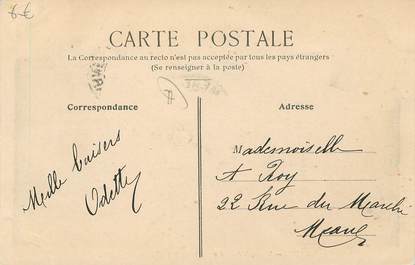 8 €
CARTE POSTALE
La Correspondance au recto n'est pas acceptée par tous les pays étrangers
(Se renseigner à la poste)
Correspondance
Adresse
Mille baisers
Odette
Mademoiselle
A Roy
22 Rue du Marché